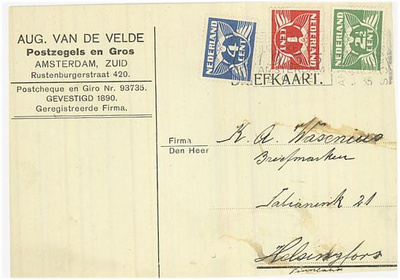 AUG. VAN DE VELDE
Postzegels en Gros
AMSTERDAM, ZUID
Rustenburgerstraat 420.
Postcheque en Giro Nr. 93735.
GEVESTIGD 1890.
Geregistreerde Firma.
NEDERLAND
4
CENT
1
CENT
NEDERLAND
NEDERLAND
2½
CENT
BRIEFKAART.
Firma
Den Heer
K. A. Wasenius
Briefmarken
Fabianink 21
Helsingfors
Finnland